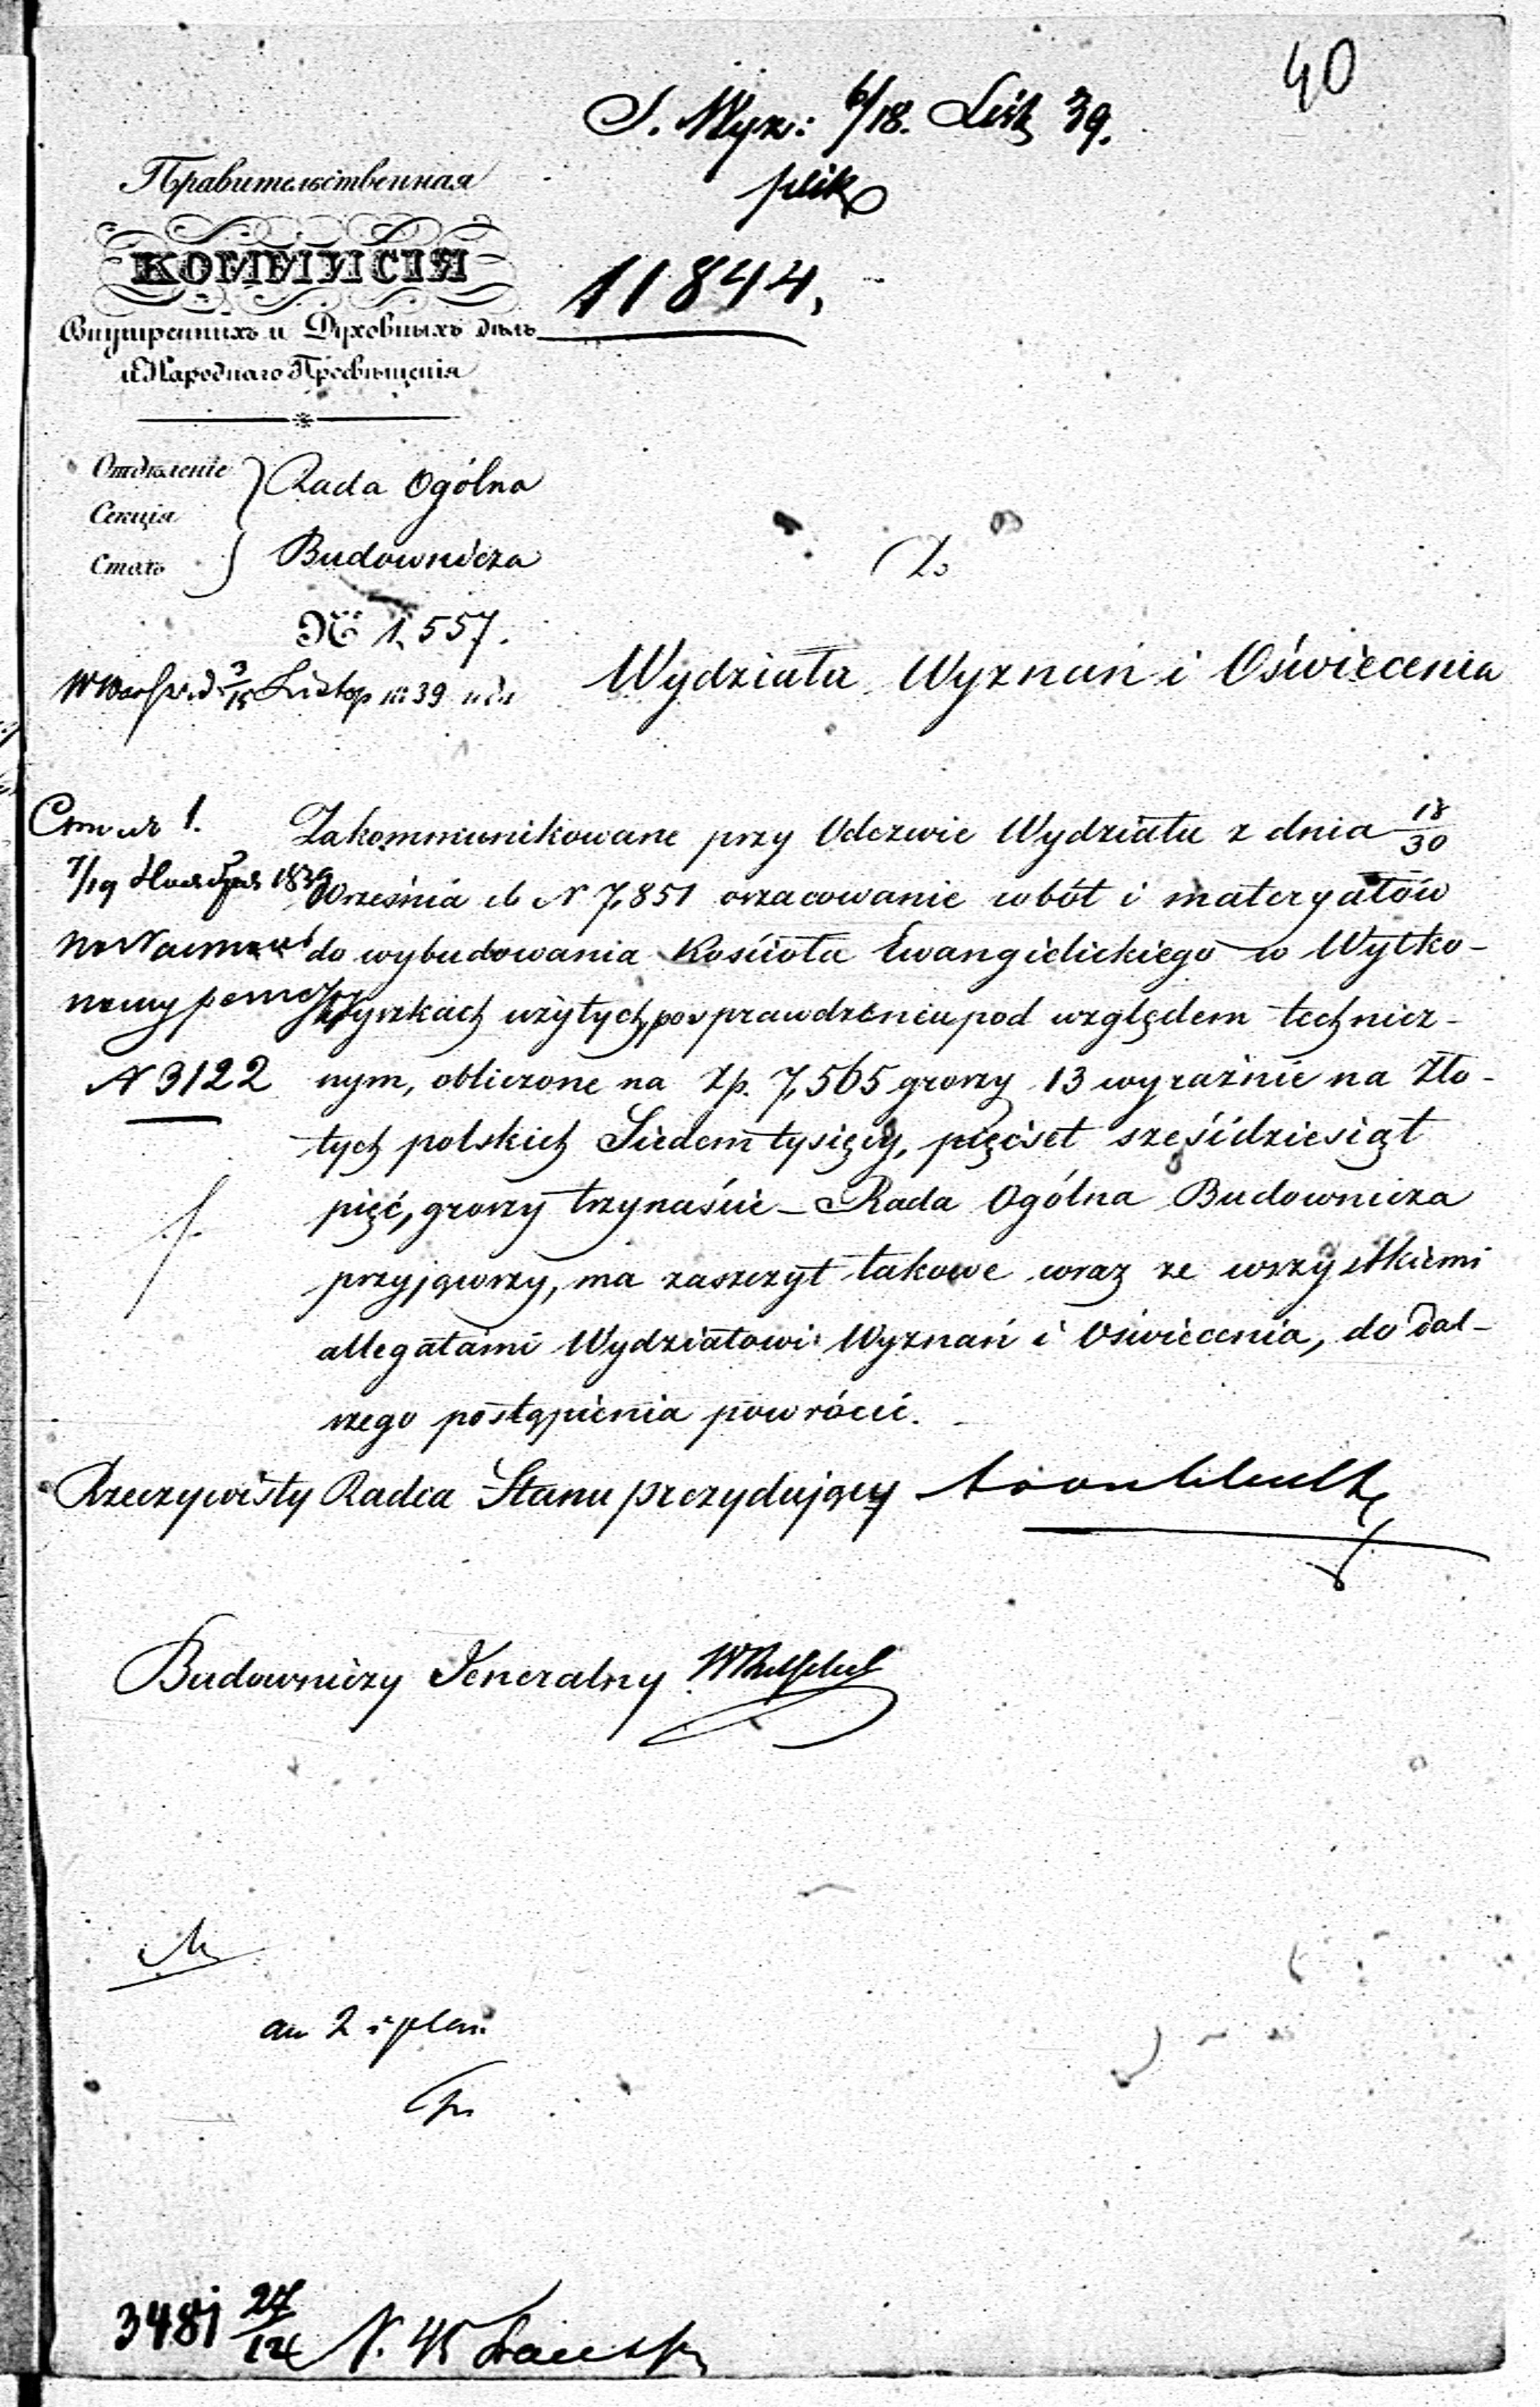 40
S. Wyz: 6/18. List 39.
plik
11844.
Правительственная
КОММИСІЯ
Внутреннихъ и Духовныхъ дѣлъ
и Народнаго Просвѣщенія
Отдѣленіе
Секція
Столъ
Rada Ogólna
Budownicza
№ 1,557.
3/15 Listop 1839
Do
Wydziału Wyznań i Oświecenia
Zakommunikowane przy Odezwie Wydziału z dnia 18/30
Września N 7,851 oszacowanie robót i materyałów
do wybudowania Kościoła Ewangielickiego w Wyłko-
wyszkach użytych, po sprawdzeniu pod względem technicz-
nym, obliczone na Zp. 7,565 groszy 13 wyraźnie na Zło-
tych polskich Siedem tysięcy, pięćset sześćdziesiąt
pięć, groszy trzynaście – Rada Ogólna Budownicza
przyjąwszy, ma zaszczyt takowe wraz ze wszystkiemi
allegatami Wydziałowi Wyznań i Oświecenia, do dal-
szego postąpienia powrócić.
7/19 1839
N 3122
Rzeczywisty Radca Stanu prezydujący
Budowniczy Jeneralny
an 2 i plan
3481 27/12 N. 45